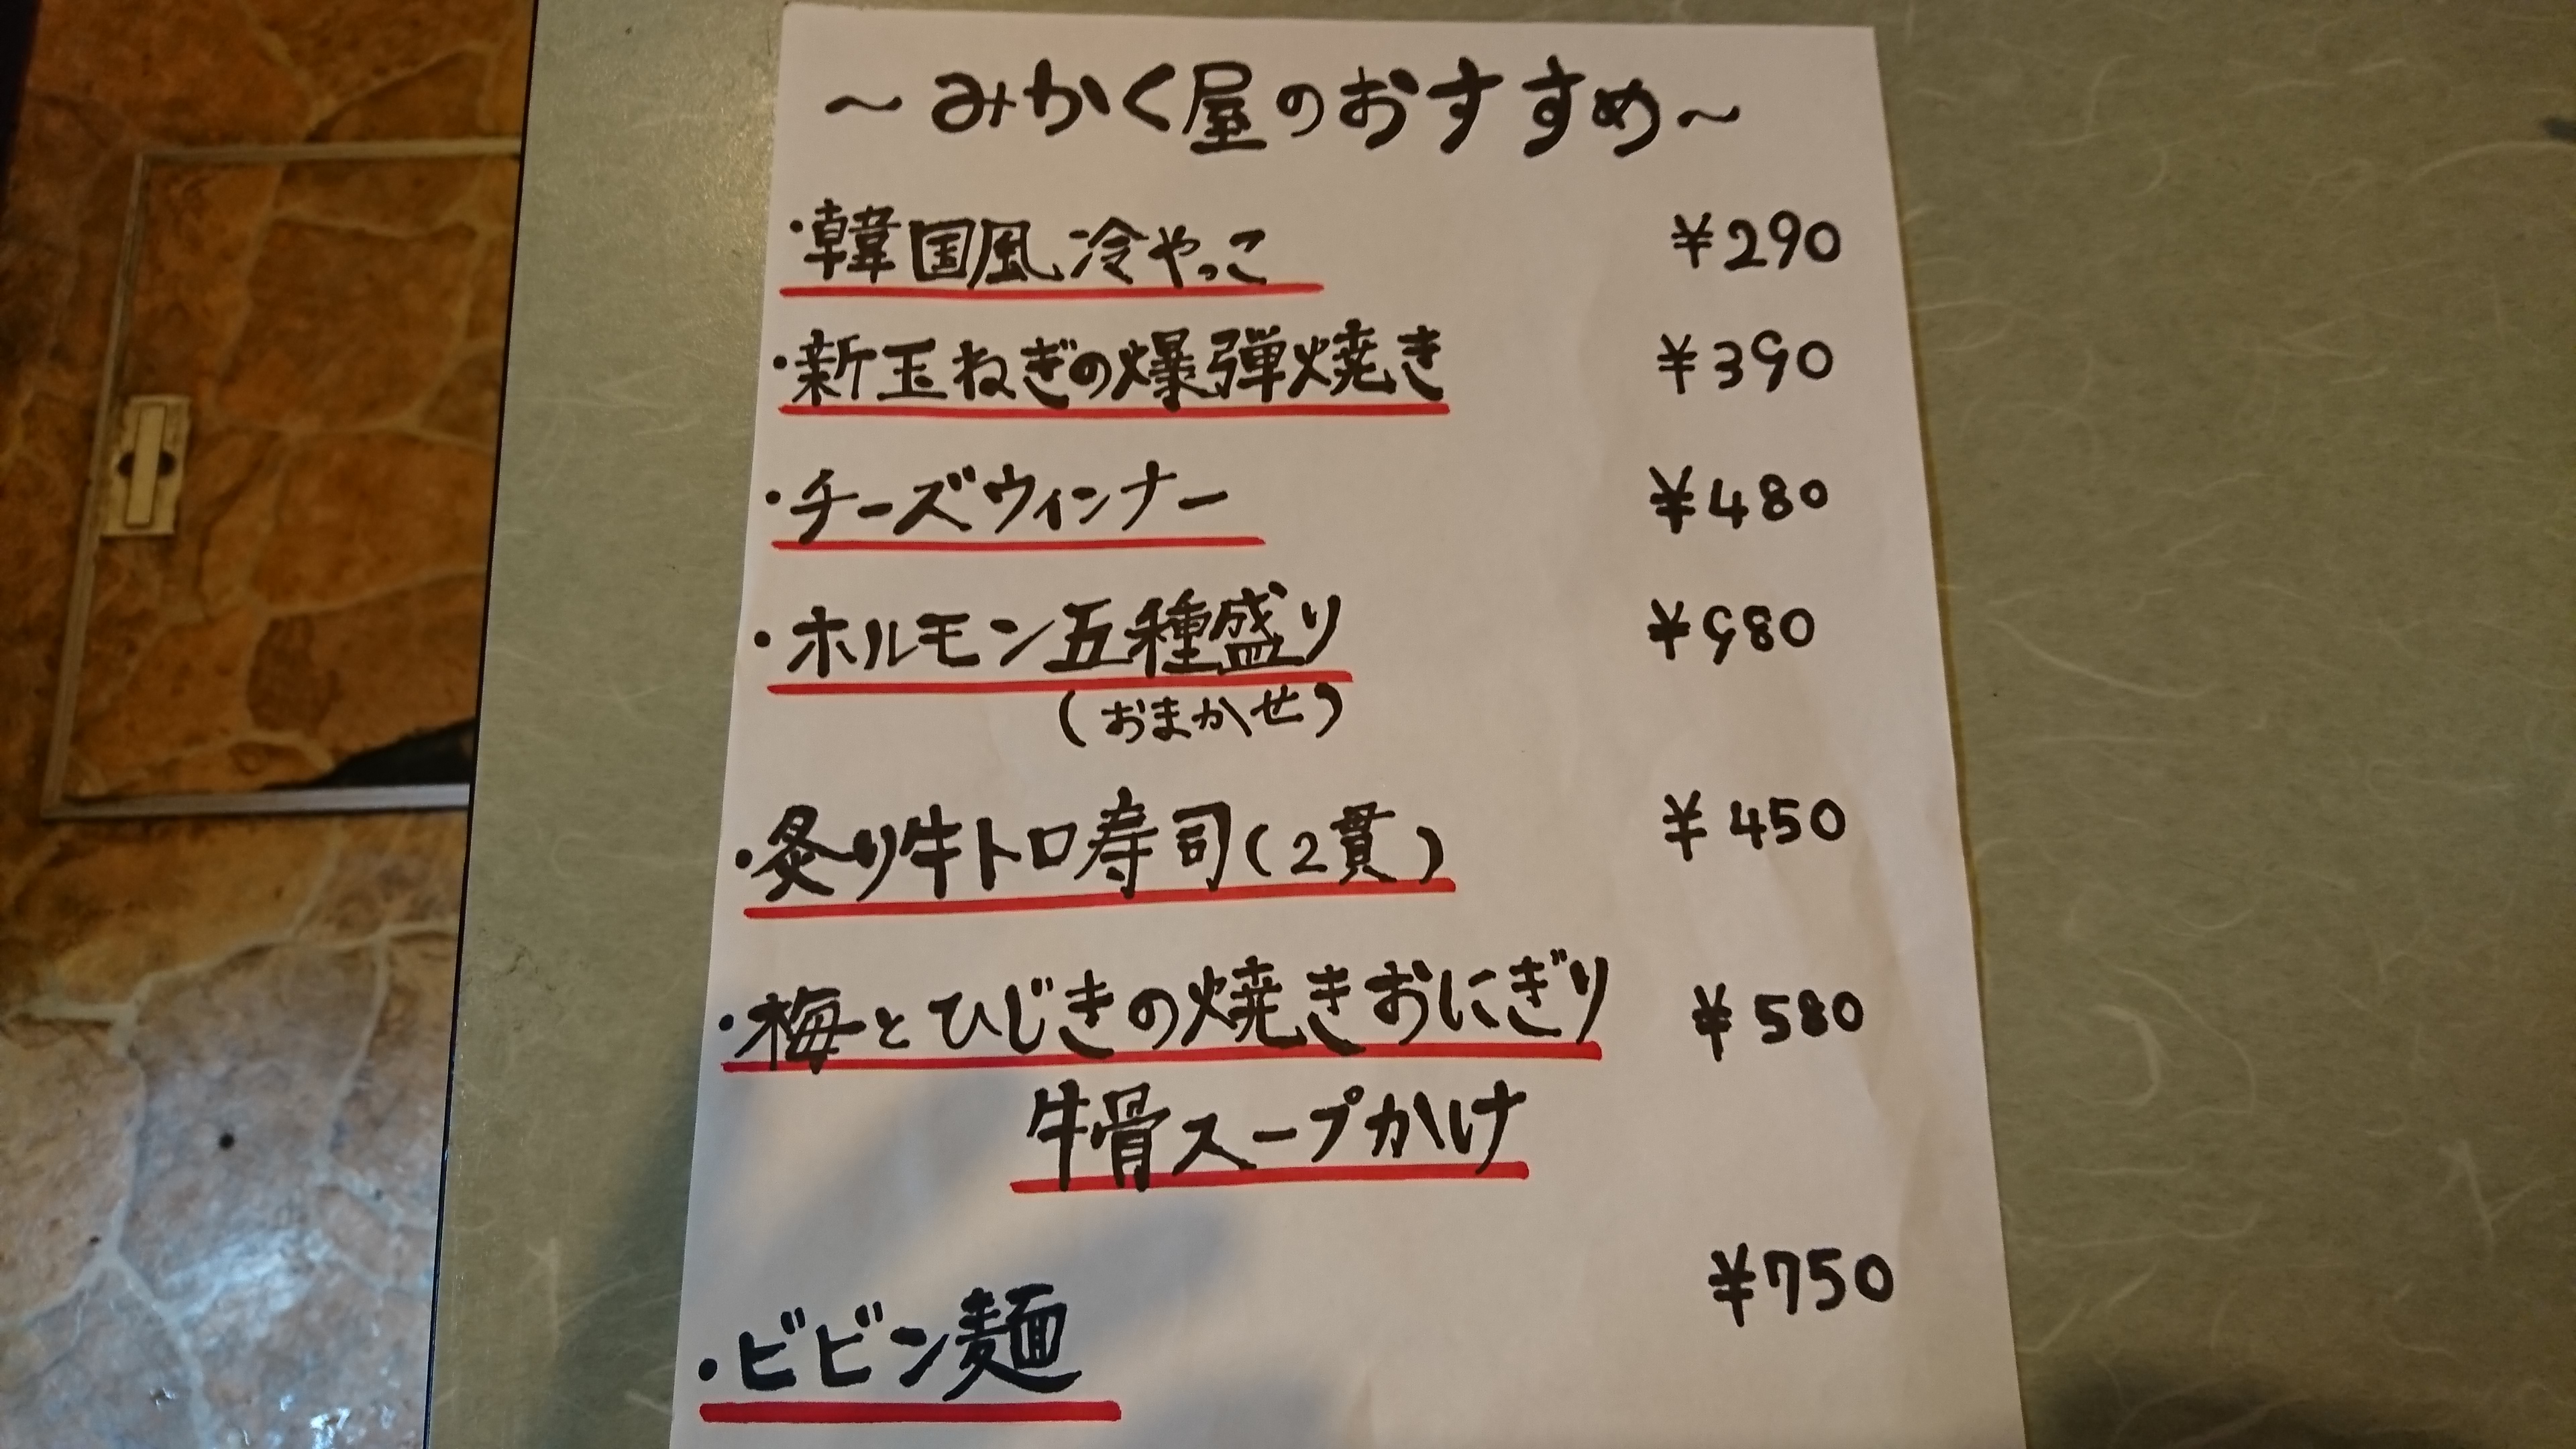 ～みかく屋のおすすめ～
・韓国風冷やっこ ¥290
・新玉ねぎの爆弾焼き ¥390
・チーズウィンナー ¥480
・ホルモン五種盛り ¥980
(おまかせ)
・炙り牛トロ寿司(2貫) ¥450
・梅とひじきの焼きおにぎり ¥580
牛骨スープかけ
・ビビン麺 ¥750